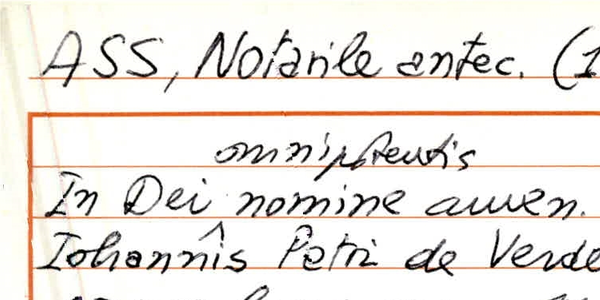 ASS, Notarile antec. (1
omnipotentis
In Dei nomine amen.
Iohannîs Petri de Verde